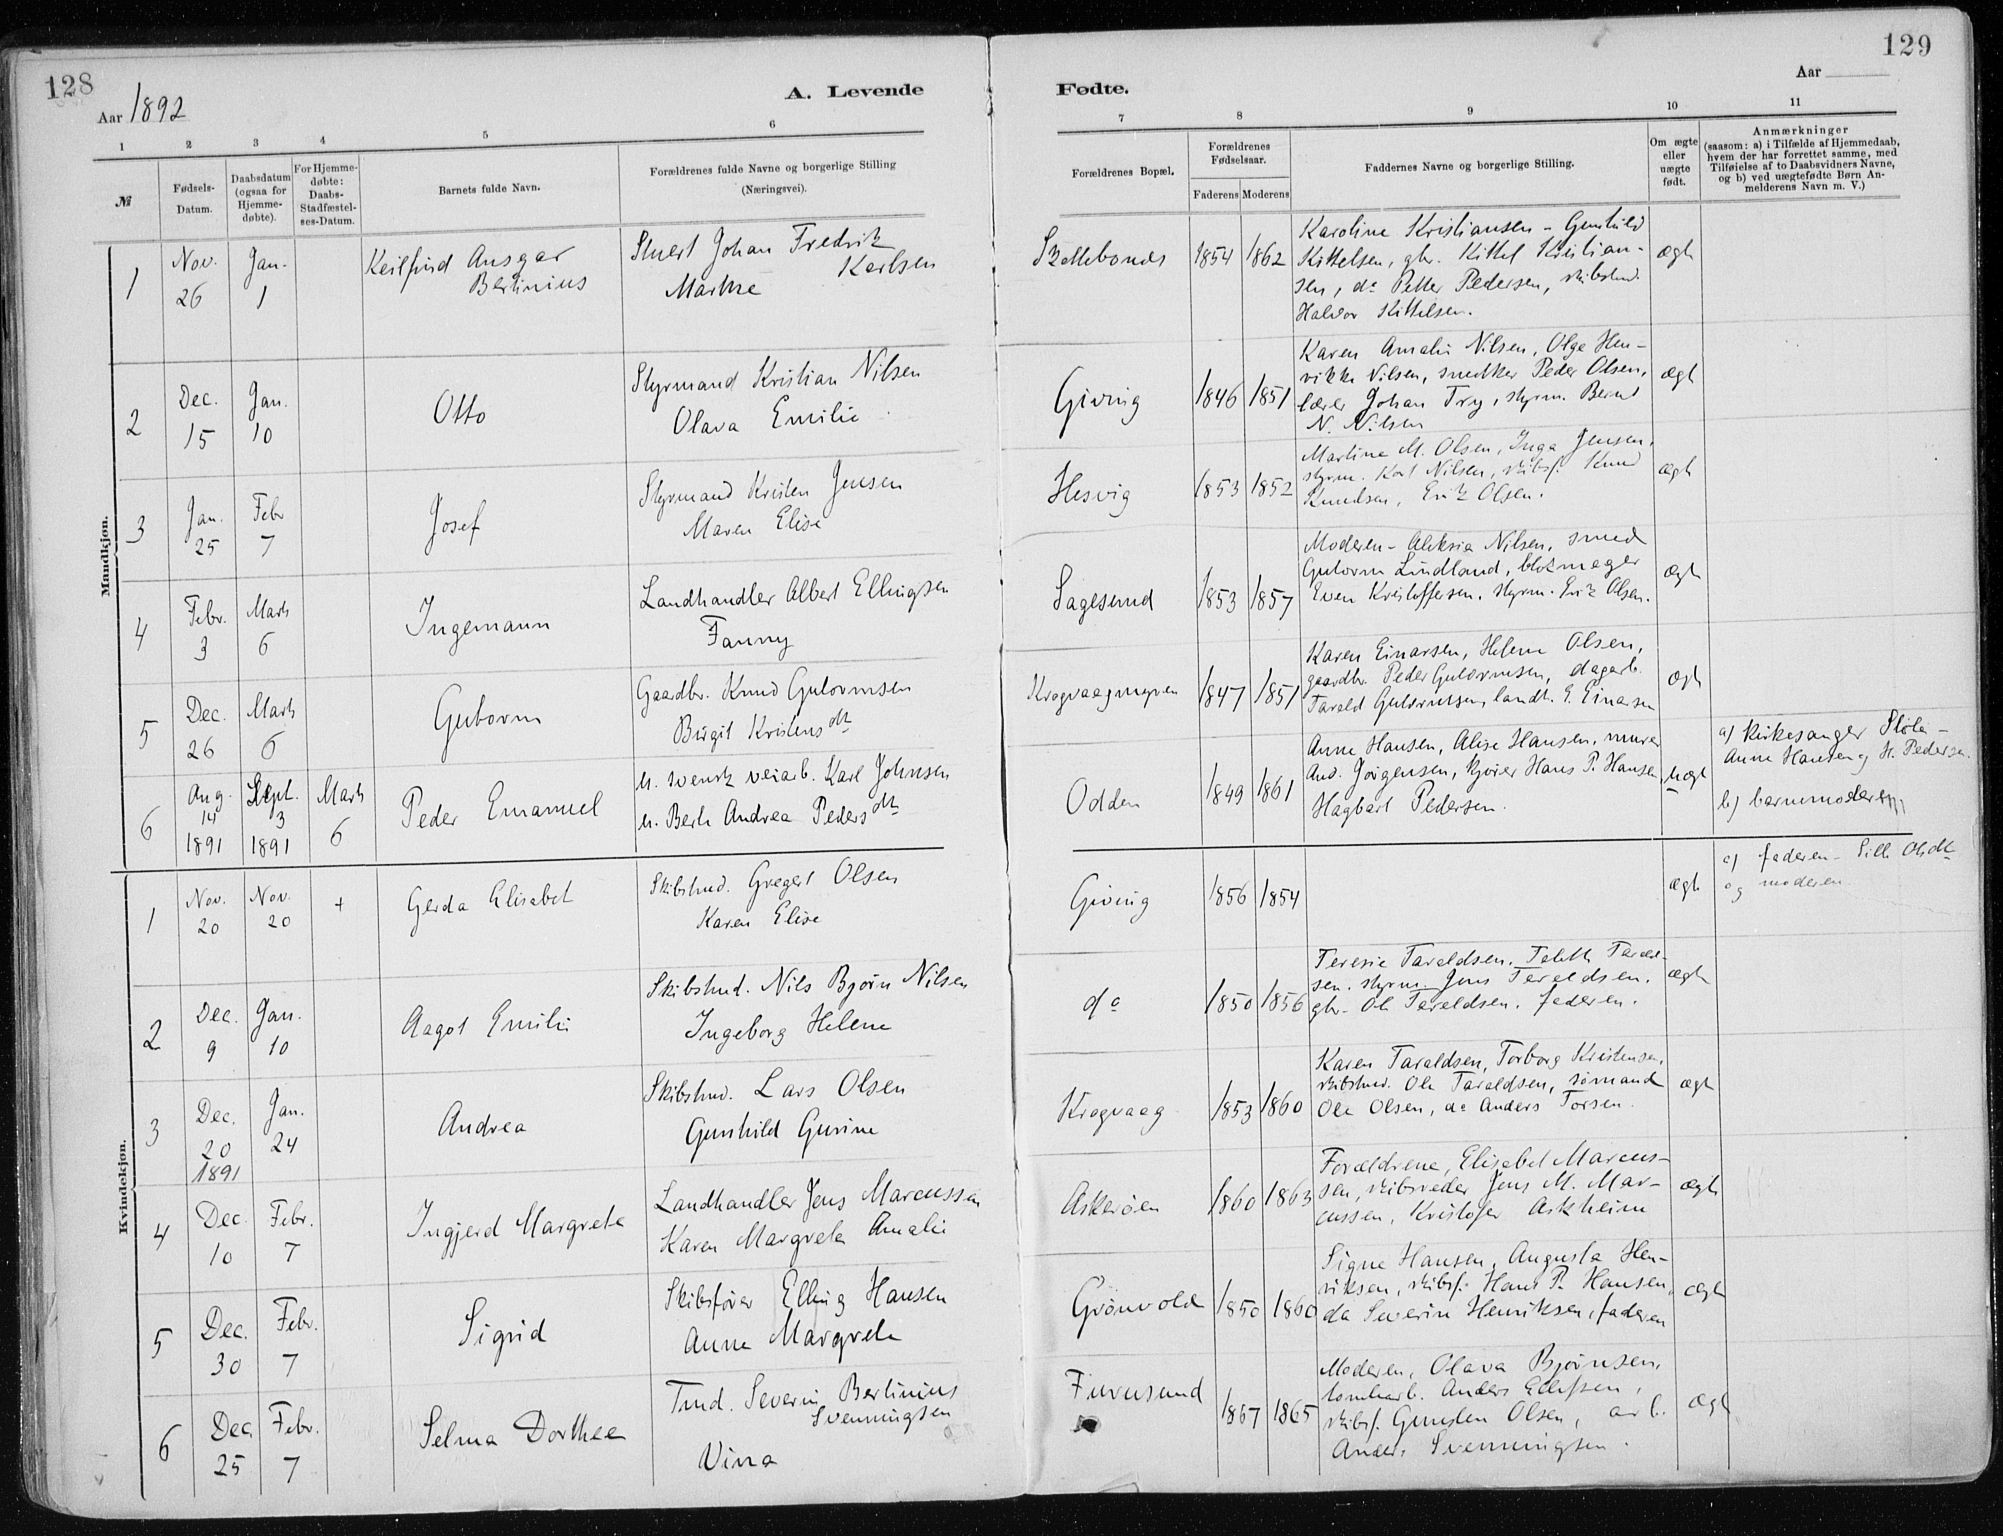 128
129
Aar 1892
A. Levende
Fødte.
Aar
1
2
3
4
5
6
7
8
9
10
11
№
Fødsels-
Datum.
Daabsdatum
(ogsaa for
Hjemme-
døbte).
For Hjemme-
døbte:
Daabs-
Stadfæstel-
ses-Datum.
Barnets fulde Navn.
Forældrenes fulde Navne og borgerlige Stilling
(Næringsvei).
Forældrenes Bopæl.
Forældrenes
Fødselsaar.
Faderens
Moderens
Faddernes Navne og borgerlige Stilling.
Om ægte
eller
uægte
født.
Anmærkninger
(saasom: a) i Tilfælde af Hjemmedaab,
hvem der har forrettet samme, med
Tilføielse af to Daabsvidners Navne,
og b) ved uægtefødte Børn An-
melderens Navn m. V.)
Mandkjøn.
1
Nov.
26
Jan.
1
Keilfrid Ansgar
Bertinius
Stuert Johan Fredrik
Karlsen
Marthe
1854
1862
Karoline Kristiansen – Gunhild
Kittelsen, gbr. Kittel Kristian-
sen, do Petter Pedersen, skibstmd.
Halvor Kittelsen.
ægte
2
Dec.
15
Jan.
10
Otto
Styrmand Kristian Nilsen
Olava Emilie
Giving
1846
1851
Karen Amalie Nilsen, Olga Hen-
rikke Nilsen, snedker Peder Olsen,
lærer Johan Try, styrm. Bernt
N. Nilsen
ægte
3
Jan.
25
Febr
7
Josef
Styrmand Kristen Jensen
Maren Elise
Hesvig
1853
1852
Martine M. Olsen, Inga Jensen,
styrm. Karl Nilsen, skibsf. Knud
Knudsen, Erik Olsen.
ægte
4
Febr.
3
Marts
6
Ingemann
Landhandler Albert Ellingsen
Fanny
Sagesund
1853
1857
Moderen – Aleksia Nilsen, smed
Gutorm Lindland, blokmager
Even Kristoffersen, styrm. Erik Olsen.
ægte
5
Dec.
26
Marts
6
Gutorm
Gaardbr. Knud Gutormsen
Birgit Kristensdtr
Krogvaagmyren
1847
1851
Karen Einarsen, Helene Olsen,
gaardbr. Peder Gutormsen, dagarb.
Tarald Gutormsen, landh. E. Einarsen
ægte
6
Aug.
14
1891
Sept.
3
1891
Marts
6
Peder Emanuel
U. svensk veiarb. Karl Johnsen
U. Berte Andrea Pedersdtr
Odden
1849
1861
Anne Hansen, Alise Hansen, murer
And. Jørgensen, kjører Hans P. Hansen
Hagbart Pedersen.
Uægte
a) Kirkesanger Sløla –
Anne Hansen og H. Pedersen.
b) barnemoderen
Kvindekjøn.
1
Nov.
20
Nov.
20
+
Gerda Elisabet
Skibstmd. Gregert Olsen
Karen Elise
Giving
1856
1854
ægte
a) faderen – Sille Olsdtr
og moderen
2
Dec.
9
Jan.
10
Aagot Emilie
Skibstmd. Nils Bjørn Nilsen
Ingeborg Helene
do
1850
1856
Teresie Taraldsen, Talette Tarald-
sen, styrm. Jens Taraldsen,
gbr. Ole Taraldsen, faderen.
ægte
3
Dec.
20
1891
Jan.
24
Andrea
Skibstmd. Lars Olsen
Gunhild Gurine
Krogvaag
1853
1860
Karen Taraldsen, Torborg Kristensen,
skibstmd. Ole Taraldsen, sømand
Ole Olsen, do Anders Torsen.
ægte
4
Dec.
10
Febr.
7
Ingjerd Margrete
Landhandler Jens Marcussen
Karen Margrete Amalie
Askerøen
1860
1863
Forældrene, Elisabet Marcus-
sen, skibsreder Jens M. Mar-
cussen, Kristofer Askheim
ægte
5
Dec.
30
Febr.
7
Sigrid
Skibsfører Elling Hansen
Anne Margrete
Grønvold
1850
1860
Signe Hansen, Augusta Hen-
riksen, skibsf. Hans P. Hansen,
do Severin Henriksen, faderen
ægte
6
Dec
25
Febr.
7
Selma Dorthea
Tmd. Severin Bertinius
Svenningsen
Vina
Furusund
1867
1865
Moderen, Olava Bjørnsen,
tomtarb. Anders Ellefsen,
skibsf. Gunsten Olsen, arb.
Anders Svenningsen.
ægte